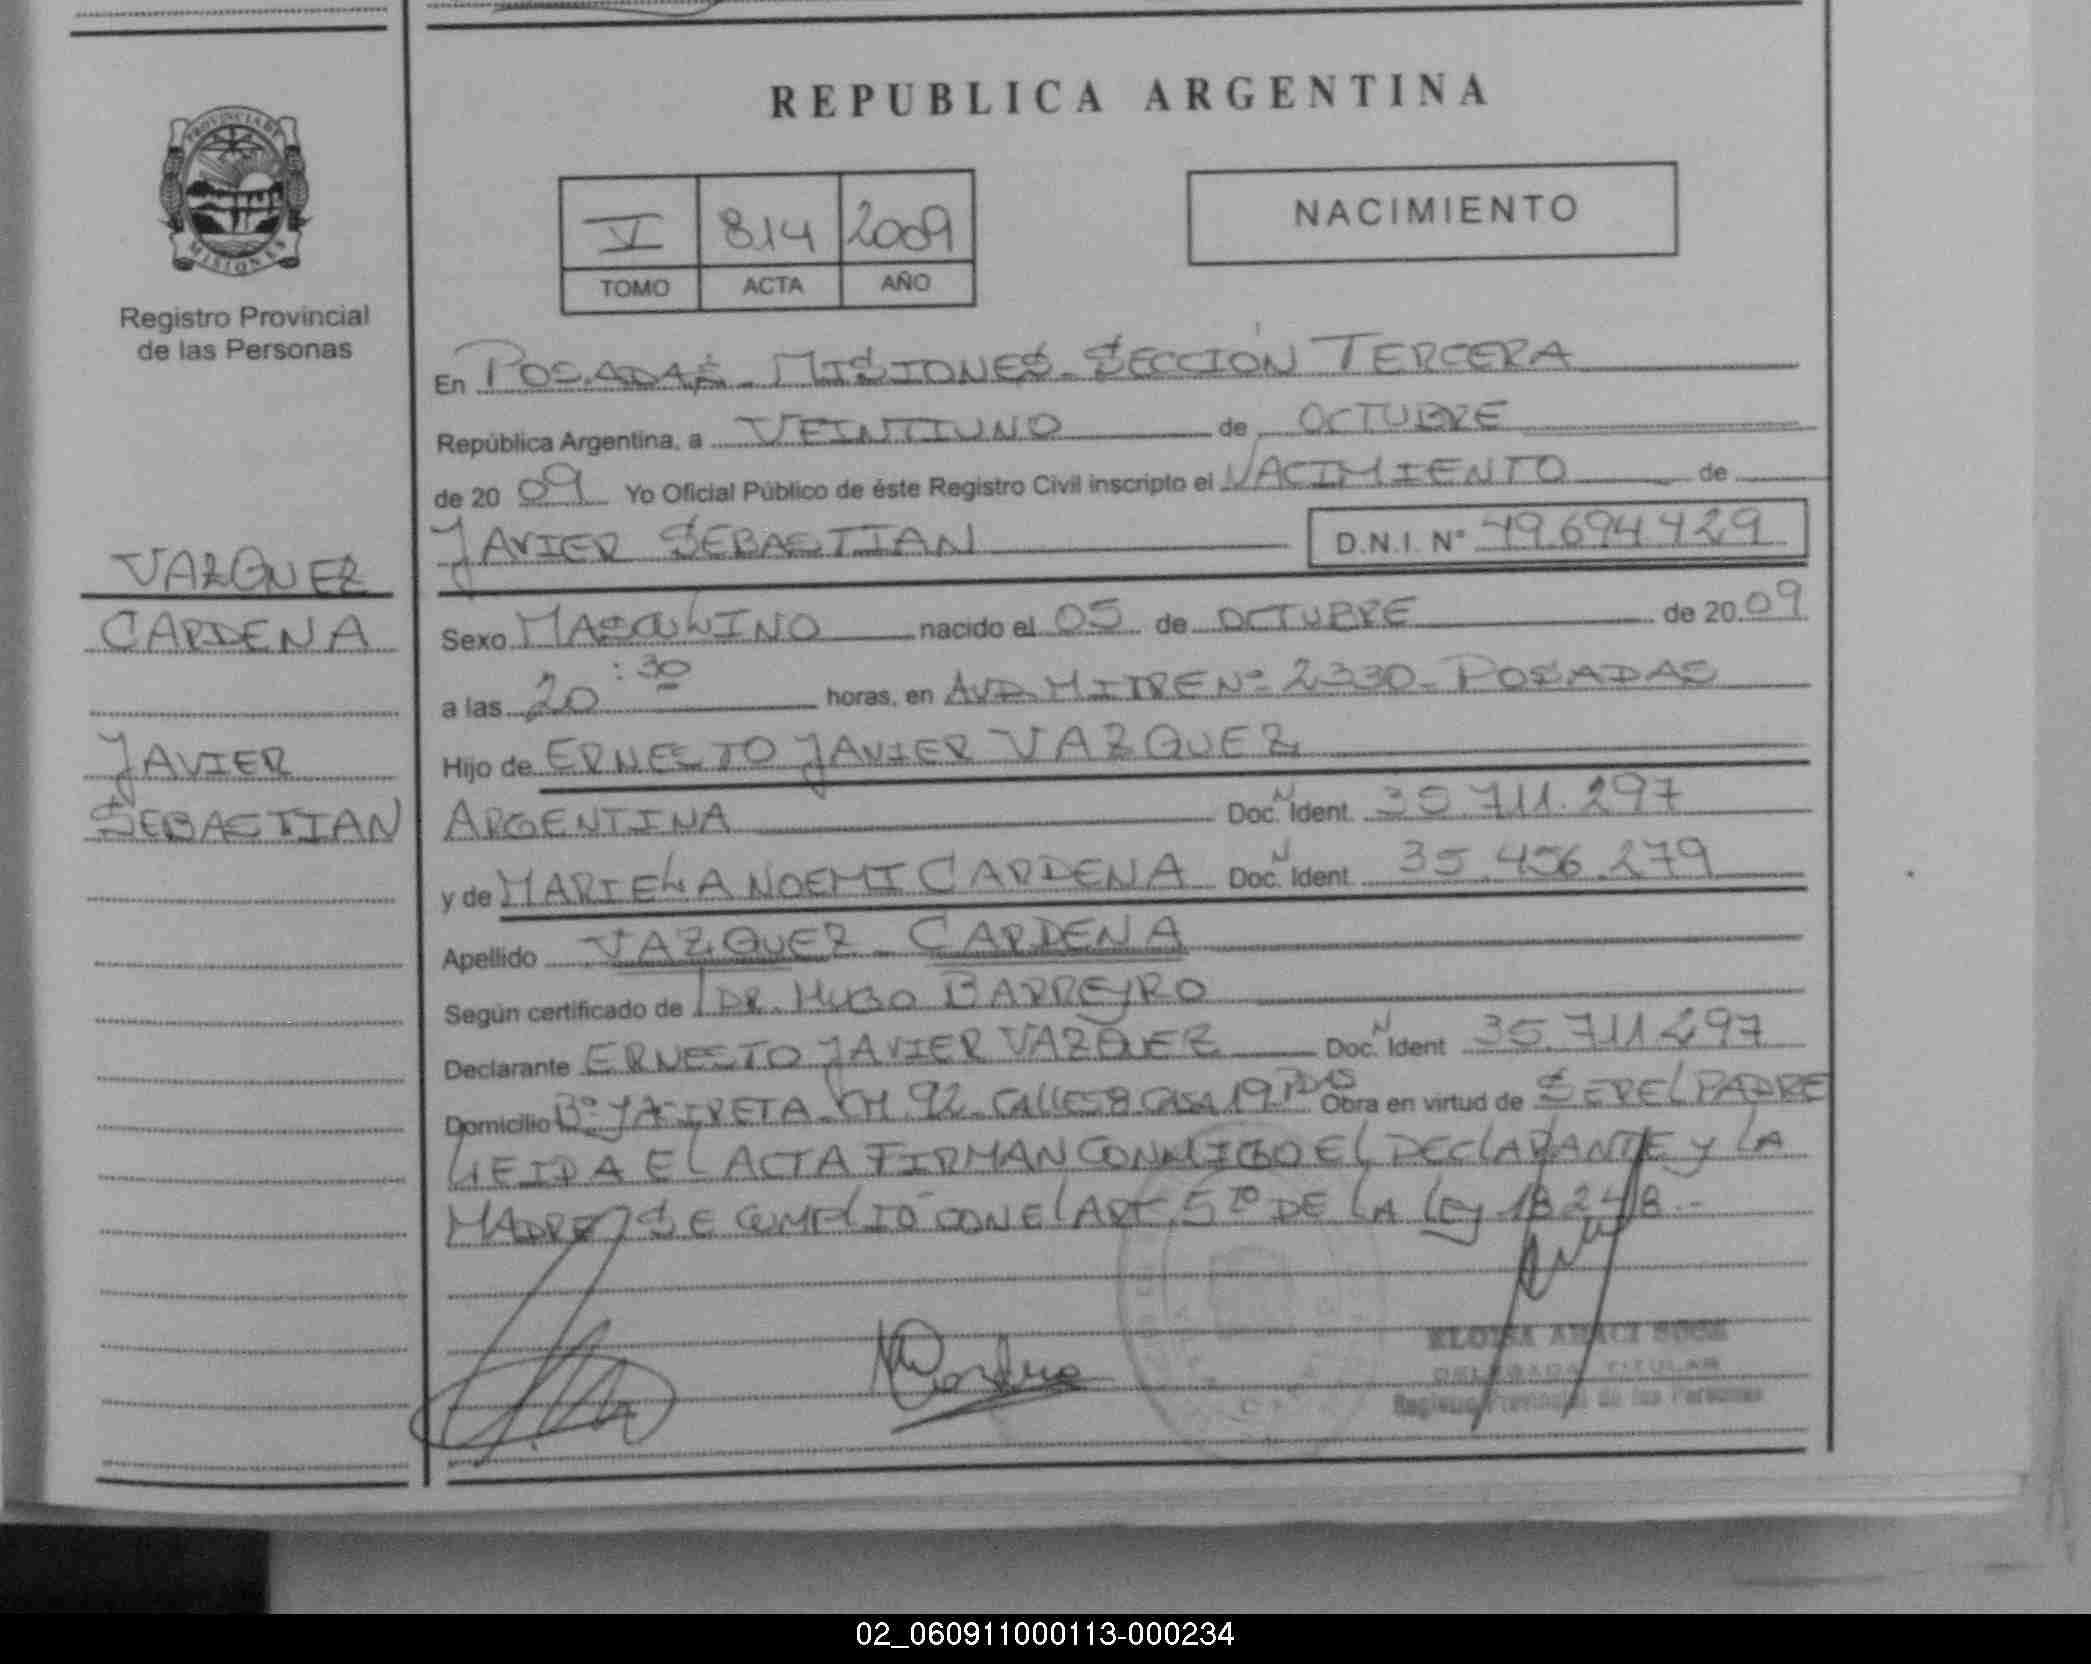 PROVINCIA DE
MISIONES
Registro Provincial
de las Personas
VAZQUEZ
CARDENA
JAVIER
SEBASTIAN
REPUBLICA ARGENTINA
V 814 2009
TOMO ACTA AÑO
NACIMIENTO
En POSADAS - MISIONES - SECCIÓN TERCERA
República Argentina, a VEINTIUNO de OCTUBRE
de 20 09 Yo Oficial Público de éste Registro Civil inscripto el NACIMIENTO de
JAVIER SEBASTIAN D.N.I. N° 49.694.429
Sexo MASCULINO nacido el 05 de OCTUBRE de 20 09
a las 20:30 horas, en AVD. MITRE N° 2330 - POSADAS
Hijo de ERNESTO JAVIER VAZQUEZ
ARGENTINA Doc. N Ident. 35.711.297
y de MARIELA NOEMI CARDENA Doc. N Ident. 35.456.279
Apellido VAZQUEZ - CARDENA
Según certificado de DR. HUGO BARREYRO
Declarante ERNESTO JAVIER VAZQUEZ Doc. N Ident 35.711.297
Domicilio B° YACIRETA CH 92 CALLE 58 CASA 19 PDAS Obra en virtud de SER EL PADRE
LEIDA EL ACTA FIRMAN CONMIGO EL DECLARANTE y LA
MADRE SE CUMPLIÓ CON EL ART. 5to DE LA LEY 18248.-
DELEGADA TITULAR
Registro Provincial de las Personas
02_060911000113-000234